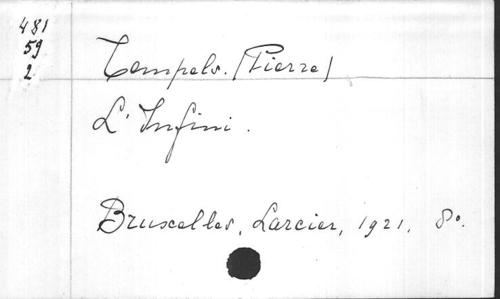 481
59
2
Tempels. (Pierre)
L'Infini.
Bruxelles, Larcier, 1921, 8°.